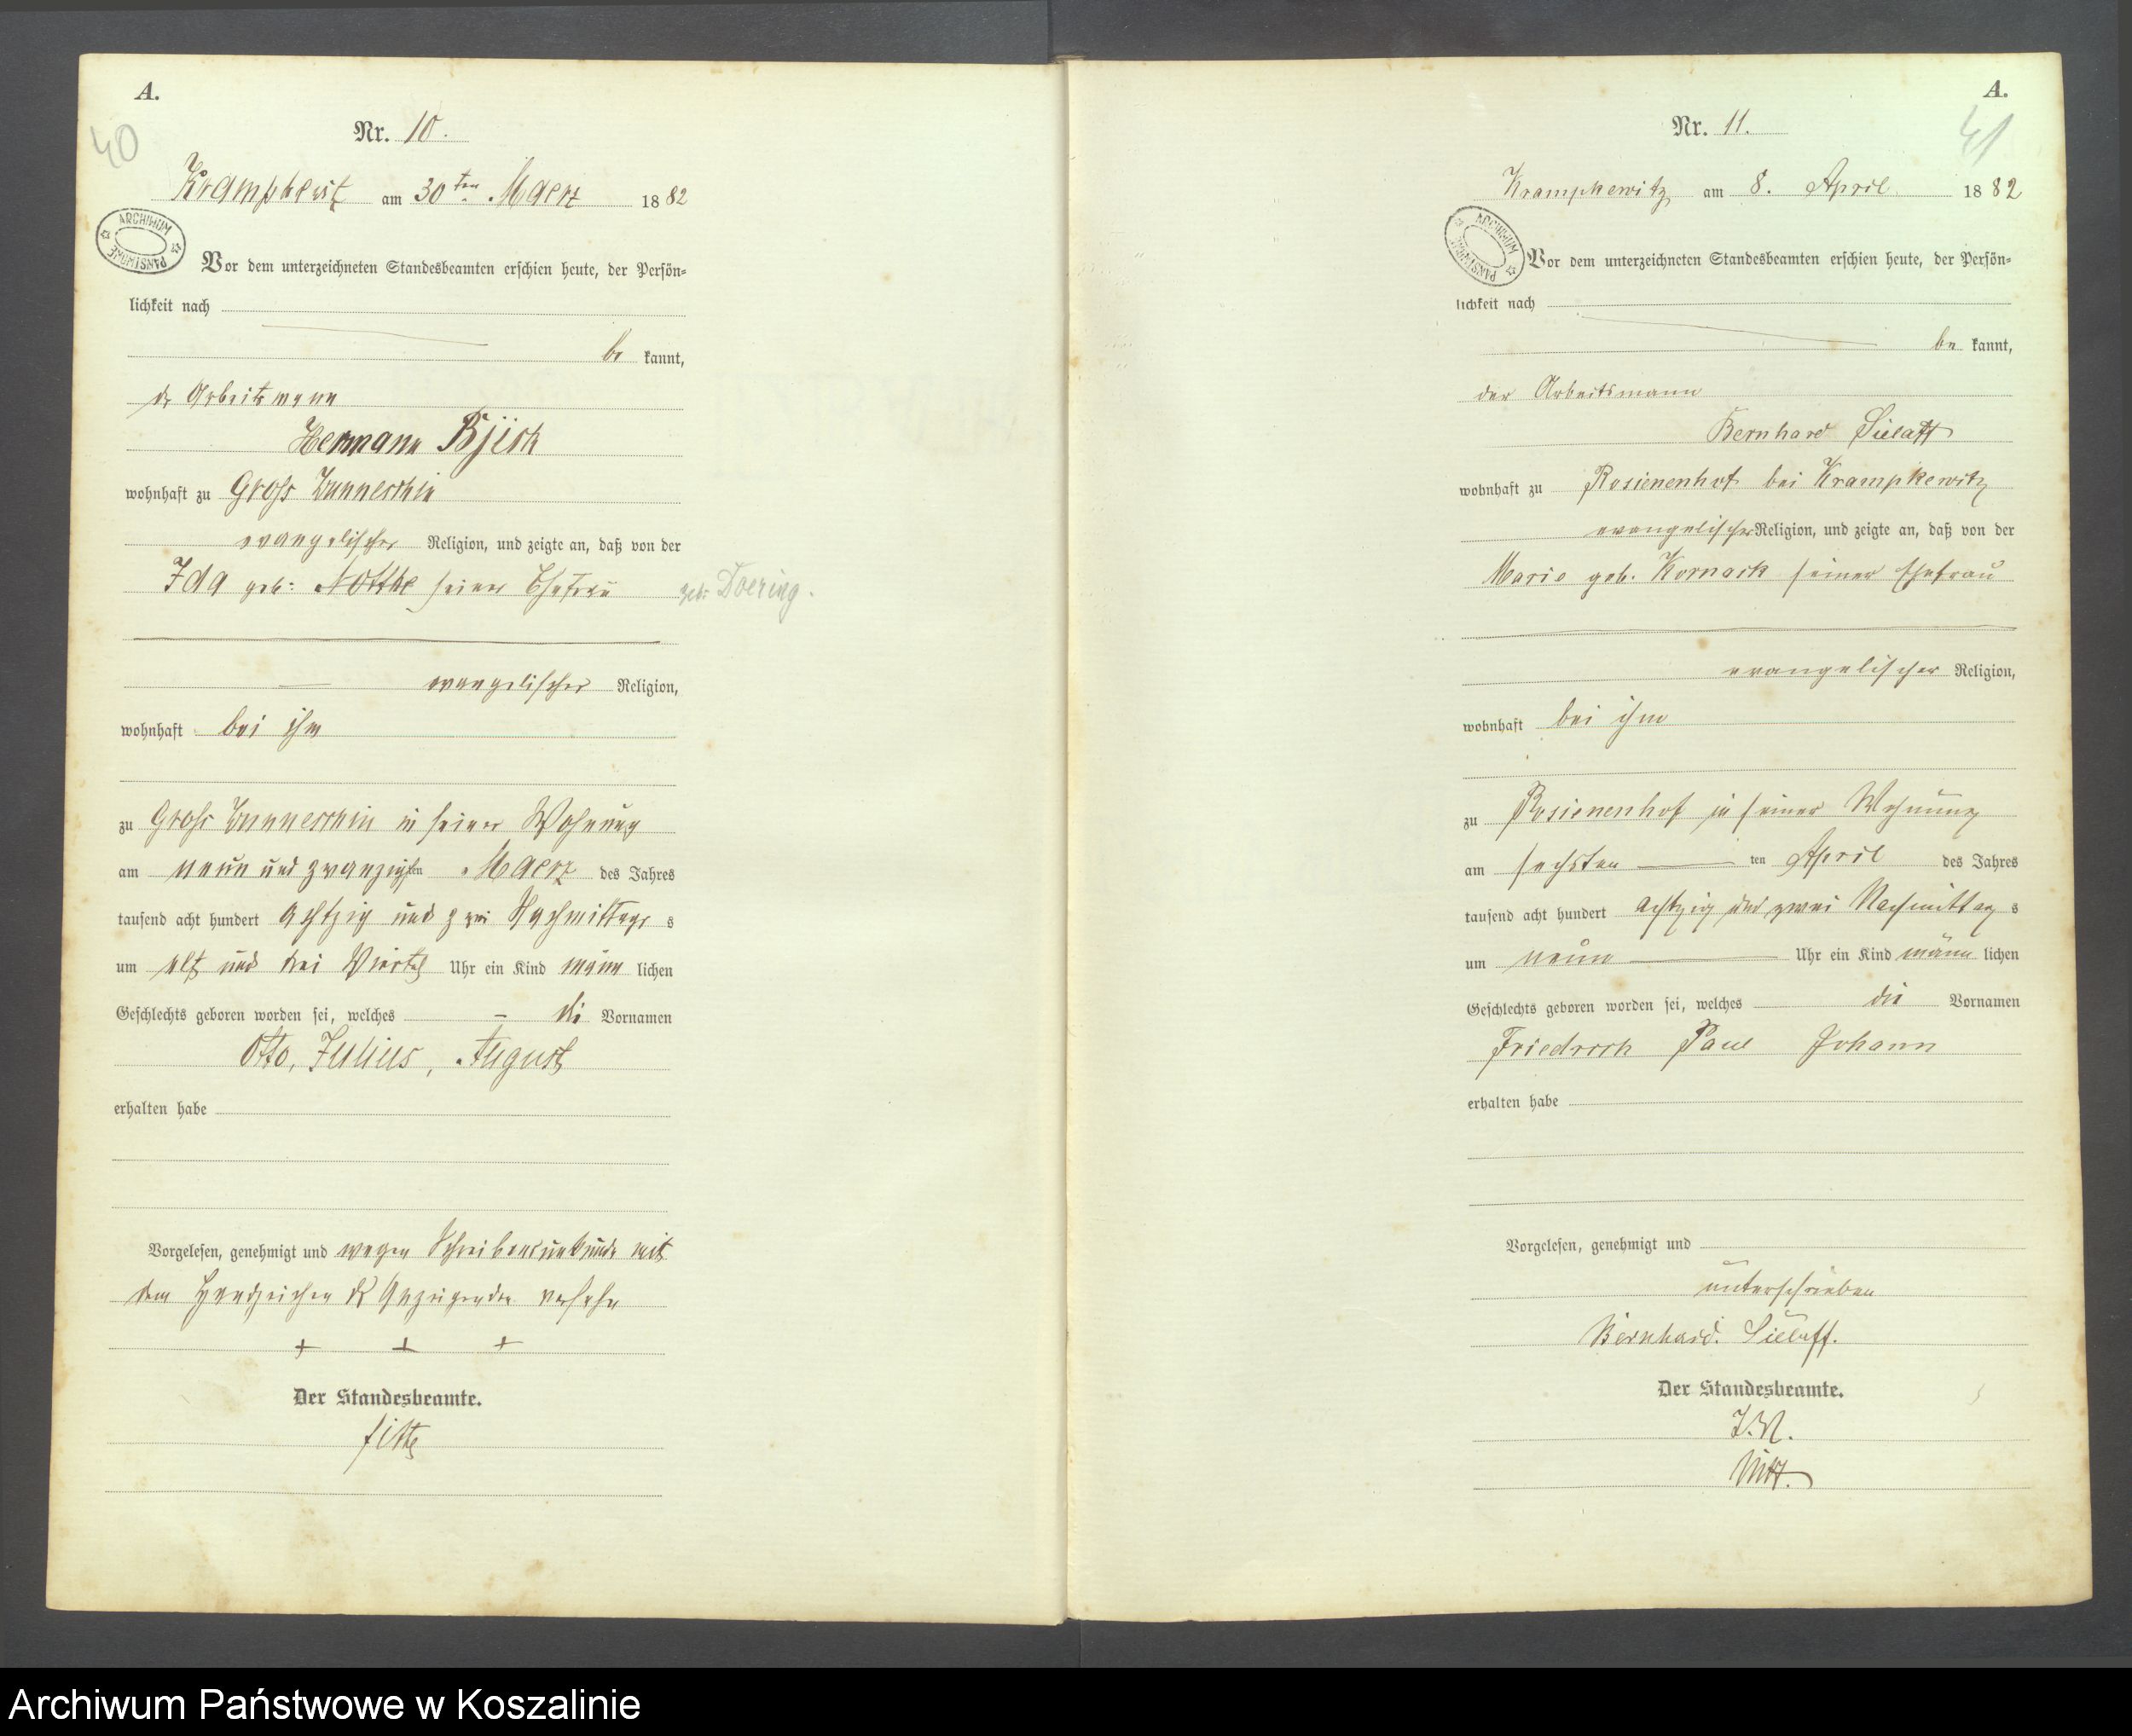 A.
40
Nr. 10.
am 30ten Maerz 1882
ARCHIWUM PAŃSTWOWE
Vor dem unterzeichneten Standesbeamten erschien heute, der Persön=
lichkeit nach
be kannt,
der Arbeitsmann
Hermann
wohnhaft zu Gross
evangelischer Religion, und zeigte an, daß von der
Ida geb: seiner Ehefrau geb: Doering.
evangelischer Religion,
wohnhaft bei ihm
zu Gross in seiner Wohnung
am neun und zwanzigsten Maerz des Jahres
tausend acht hundert achtzig und zwei Nachmittags
um elf und drei Viertel Uhr ein Kind männ lichen
Geschlechts geboren worden sei, welches die Vornamen
Otto, Julius, August
erhalten habe
Vorgelesen, genehmigt und wegen Schreibensunkunde mit
dem Handzeichen des Anzeigenden versehen
+ + +
Der Standesbeamte.
A.
41
Nr. 11.
Krampkewitz am 8. April 1882
ARCHIWUM PAŃSTWOWE
Vor dem unterzeichneten Standesbeamten erschien heute, der Persön=
lichkeit nach
be kannt,
der Arbeitsmann
Bernhard Sielaff
wohnhaft zu Rosienenhof bei Krampkewitz
evangelischer Religion, und zeigte an, daß von der
Marie geb. Kornack seiner Ehefrau
evangelischer Religion,
wohnhaft bei ihm
zu Rosienenhof in seiner Wohnung
am sechsten ten April des Jahres
tausend acht hundert achtzig und zwei Nachmittag s
um neun Uhr ein Kind männ lichen
Geschlechts geboren worden sei, welches die Vornamen
Friedrich Paul Johann
erhalten habe
Vorgelesen, genehmigt und
unterschrieben
Bernhard. Sielaff.
Der Standesbeamte.
J.V.
Archiwum Państwowe w Koszalinie